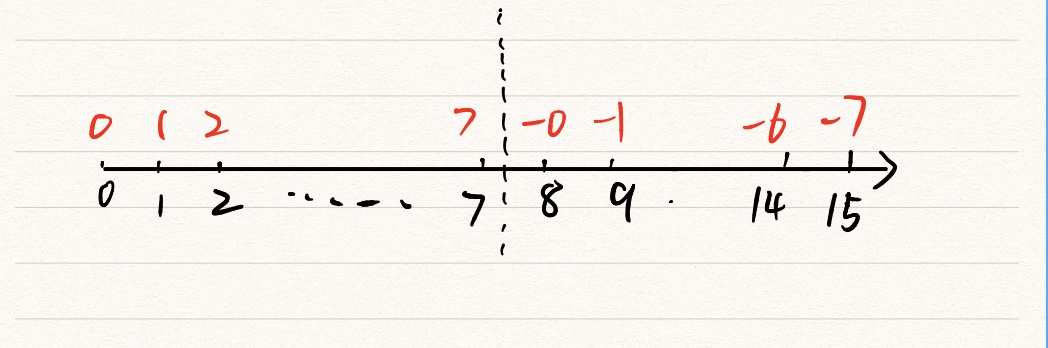 0 1 2 7 -0 -1 -6 -7
0 1 2 ...... 7 8 9 . 14 15